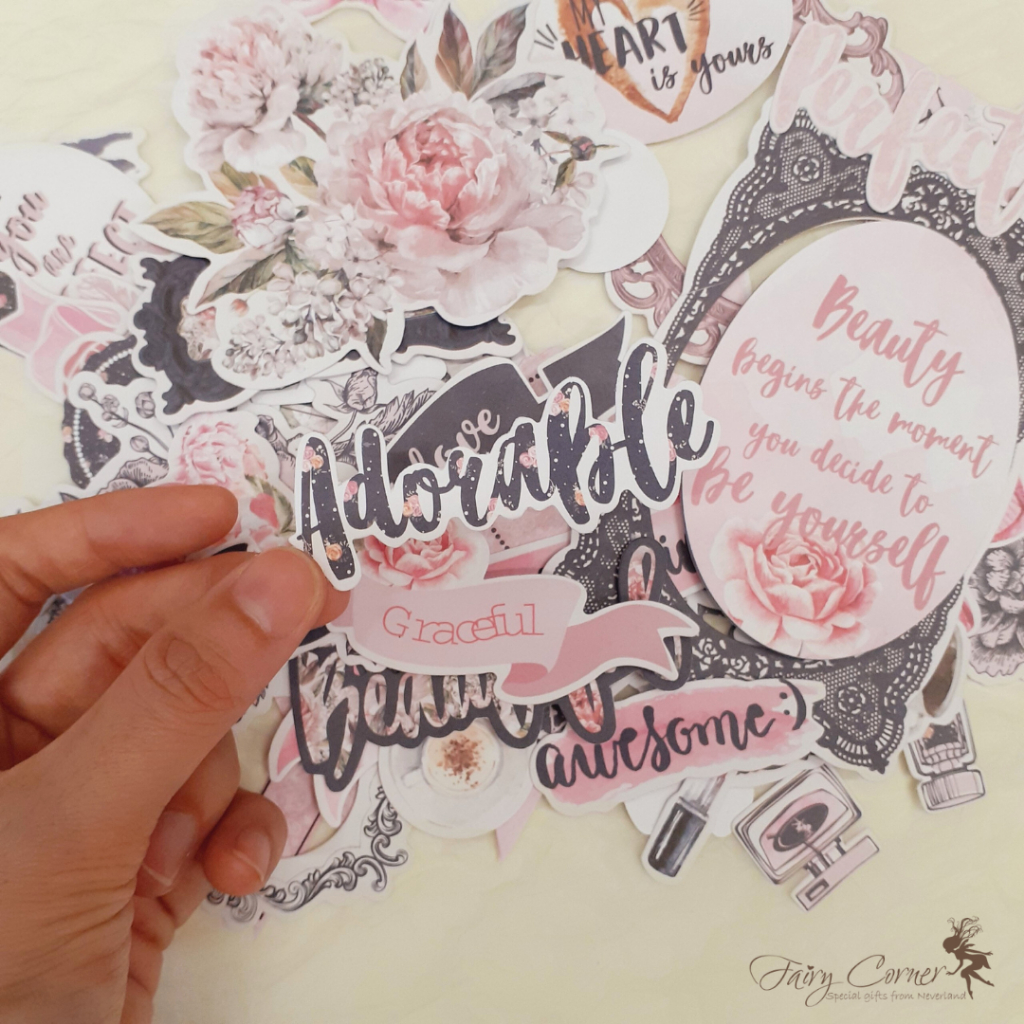 MY
HEART
is yours
Perfect
you are
Beauty
begins the moment
you decide to
Be yourself
love
Adorable
Graceful
Beautiful
awesome :)
Fairy Corner
Special gifts from Neverland